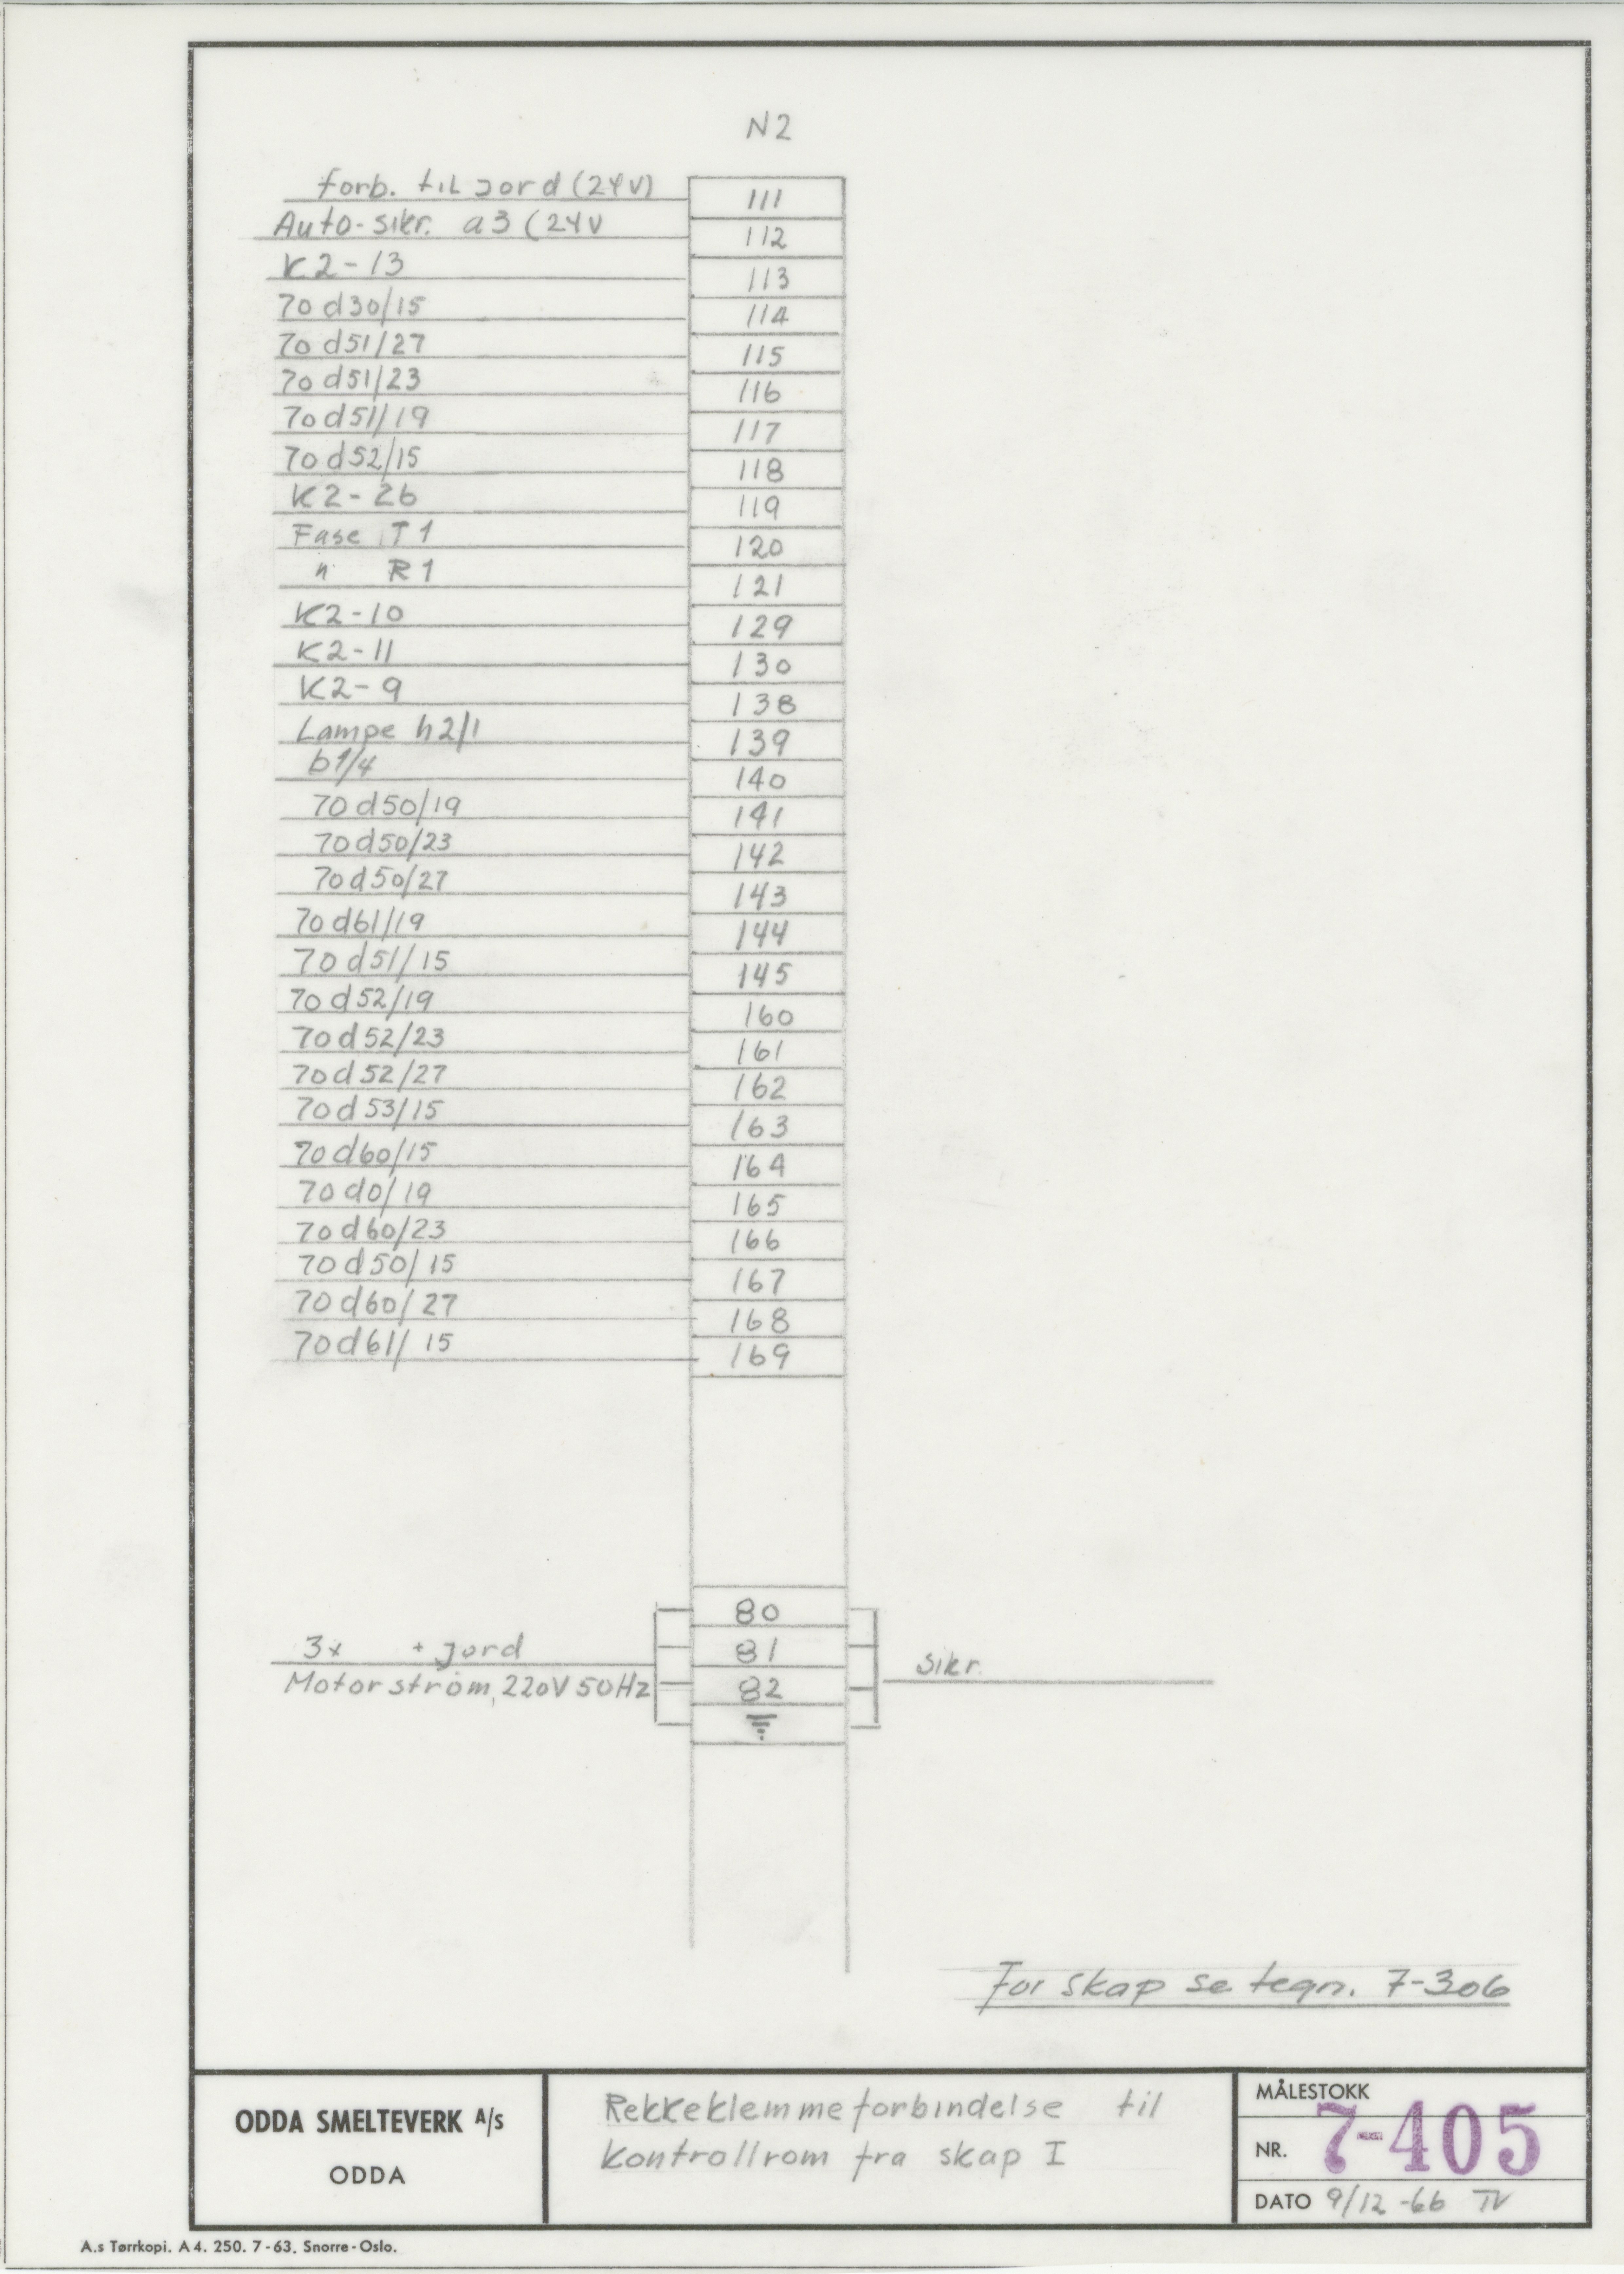 N2
forb. til jord (24V) 111
Auto-sikr. a3 (24V 112
K2-13 113
70 d30/15 114
70 d51/27 115
70 d51/23 116
70 d51/19 117
70 d52/15 118
K2-26 119
Fase T1 120
" R1 121
K2-10 129
K2-11 130
K2-9 138
Lampe h2/1 139
b1/4 140
70 d50/19 141
70 d50/23 142
70 d50/27 143
70 d61/19 144
70 d51/15 145
70 d52/19 160
70 d52/23 161
70 d52/27 162
70 d53/15 163
70 d60/15 164
70 d0/19 165
70 d60/23 166
70 d50/15 167
70 d60/27 168
70 d61/15 169
80
3x + jord 81
sikr.
Motorstrøm, 220V 50Hz 82
For skap se tegn. 7-306
ODDA SMELTEVERK A/S
ODDA
Rekkeklemmeforbindelse til
kontrollrom fra skap I
MÅLESTOKK
NR. 7-405
DATO 9/12-66 TV
A.s Tørrkopi. A4. 250. 7-63. Snorre-Oslo.